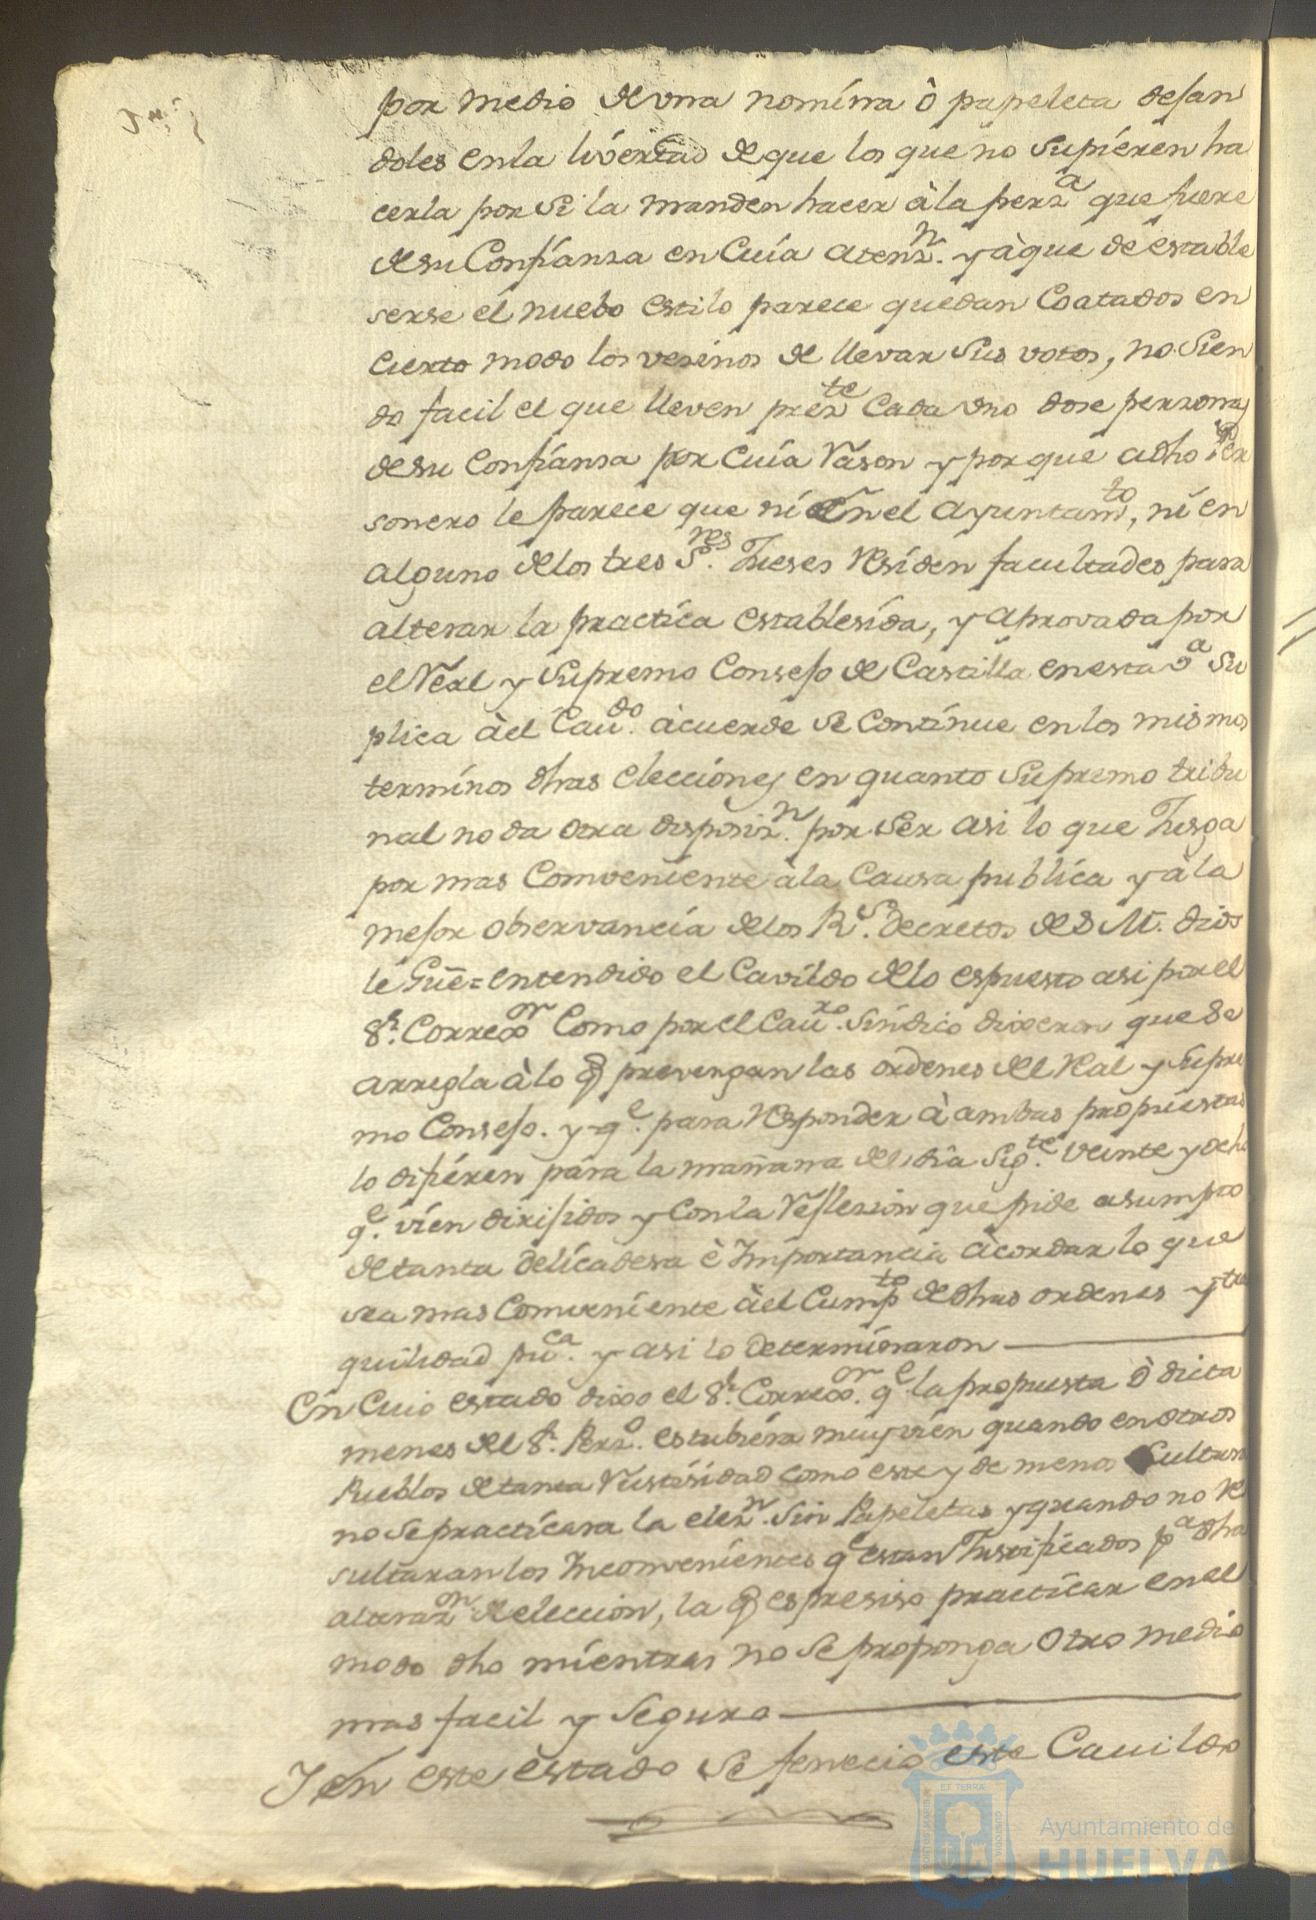 por medio de vna nomína ò papeleta dejan
doles en la livertad de que los que no supieren ha
cerla por si la manden hacer à la perz.ª que fuere
de su Confíanza en Cuía atenz.n y àque de estable
serse el nuebo estilo parece quedan Coatados en
cierto modo los vesinos de llevar sus votos, no sien
do facil el que lleven prez.te Cada vno dose personas
de su Confianza por cuía Rason y porque a dho Per
sonero le parece que ní en el Ayuntam.to, ní en
alguno de los tres S.res Jueses Resíden facultades para
alterar la practíca establesída, y aprovada por
el Real y Supremo Consejo de Castilla en esta v.ª su
plica àel Cau.do àcuerde se Contínue en los mismos
termínos dhas elecciones en quanto supremo tribu
nal no da otra disposiz.n por ser asi lo que Jusga
por mas Conveniente à la Causa publíca y à la
mejor observancia de los R.s decretos de S M. dios
le Gũe = entendido el Cavildo de lo espuesto asi por el
S.r Correx.or Como por el Cau.ro Síndico dixeron que se
arregla à lo q prevengan las ordenes del Real y Supre
mo Consejo. y q.e para Responder à ambas propuestas
lo difiéren para la mañana del dia Sig.te veinte y ocho
q.e víen dirijidos y Con la Reflexion que pide asumpto
de tanta delícadesa è Importancia àcordar lo que
sea mas Conveniente àel Cump.to de dhas ordenes y tra
quilidad pu.ca y asi lo determínaron
En Cuio estado dixo el S.r Correx.or q.e la propuesta ò dicta
menes del S.r Perz.o estubiéra muy vien quando en otros
Pueblos de tanta Rustisidad como este y de menos Cultura
no se practícara la elez.n sin Papeletas y quando no Re
sultaran los Inconvenientes q.e estan Justificados p.ª dha
alteraz.on de eleccion, la q es presiso practícar en el
modo dho míentras no se proponga otro medio
mas facil y seguro
I en este estado se fenecio este Cauildo
Ayuntamiento de
HUELVA